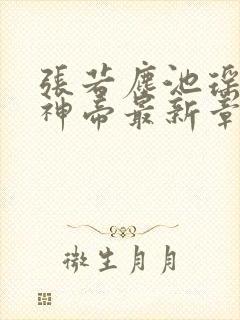 張若塵池瑤
神帝最新章
微生月月